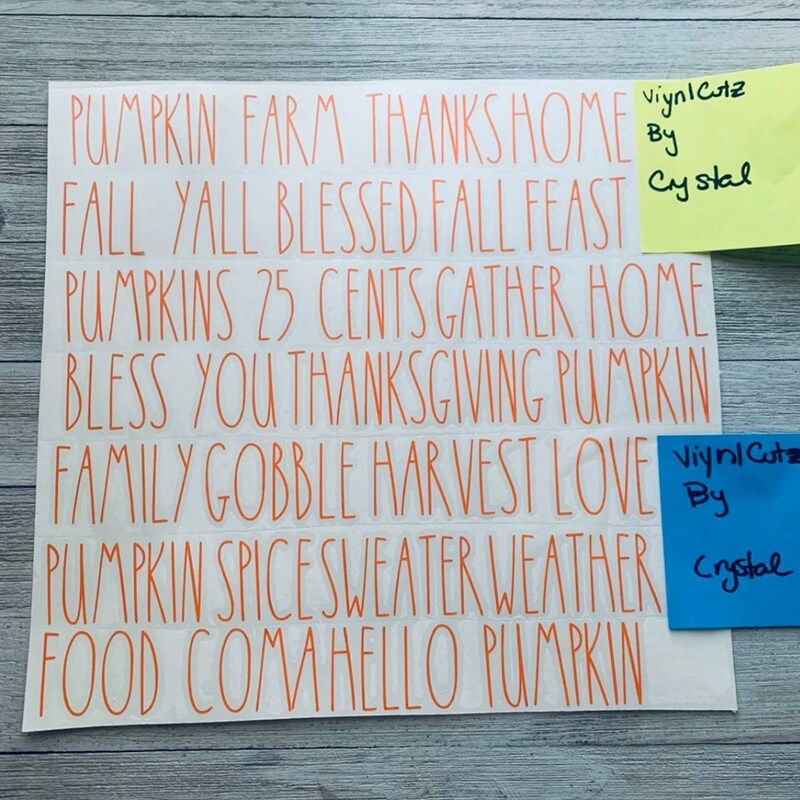 PUMPKIN FARM THANKS HOME
FALL YALL BLESSED FALL FEAST
PUMPKINS 25 CENTS GATHER HOME
BLESS YOU THANKSGIVING PUMPKIN
FAMILY GOBBLE HARVEST LOVE
PUMPKIN SPICE SWEATER WEATHER
FOOD COMA HELLO PUMPKIN
ViynlCutz
By
Crystal
ViynlCutz
By
Crystal